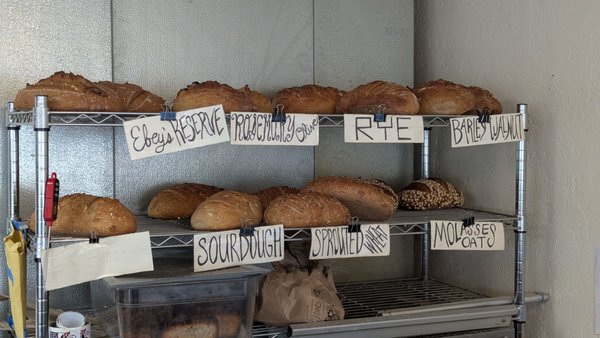 Ebey's RESERVE
ROSEMARY Olive
RYE
BARLEY WALNUT
SOURDOUGH
SPROUTED WHEAT
MOLASSES
OATS